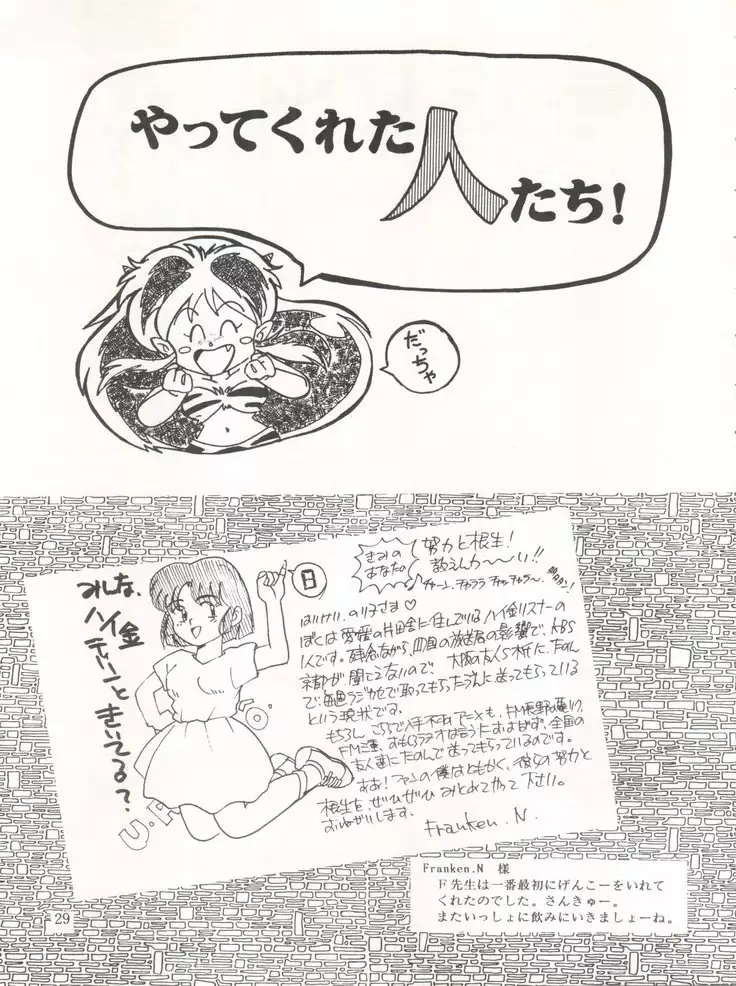 やってくれた人
たち!
だっちゃ
みんな、
ハイ金
きいてる?
きみの
あなたの
努力と根生!
教えんか〜い!!
日
はいけい、のり子さま♡
ぼくは愛媛の片田舎に住している ハイ金リスナーの
1人です。残念ながら、四国の放送局の影響で、KBS
京都が聞こえないので、大阪の友人
で、毎週ラジカセで取ってもらったうえに送ってもらっている
という現状です。
アニメも、FM長野の
FM三重、 全国の
友人達にたのんで送ってもらっているのです。
ああ!ファンの僕はともかく、彼らの努力と
根生を、ぜひぜひ みとめてやって下さい。
おねがいします。
Franken.N.
Franken.N 様
F先生は一番最初にげんこーをいれて
くれたのでした。さんきゅー。
またいっしょに飲みにいきましょーね。
29